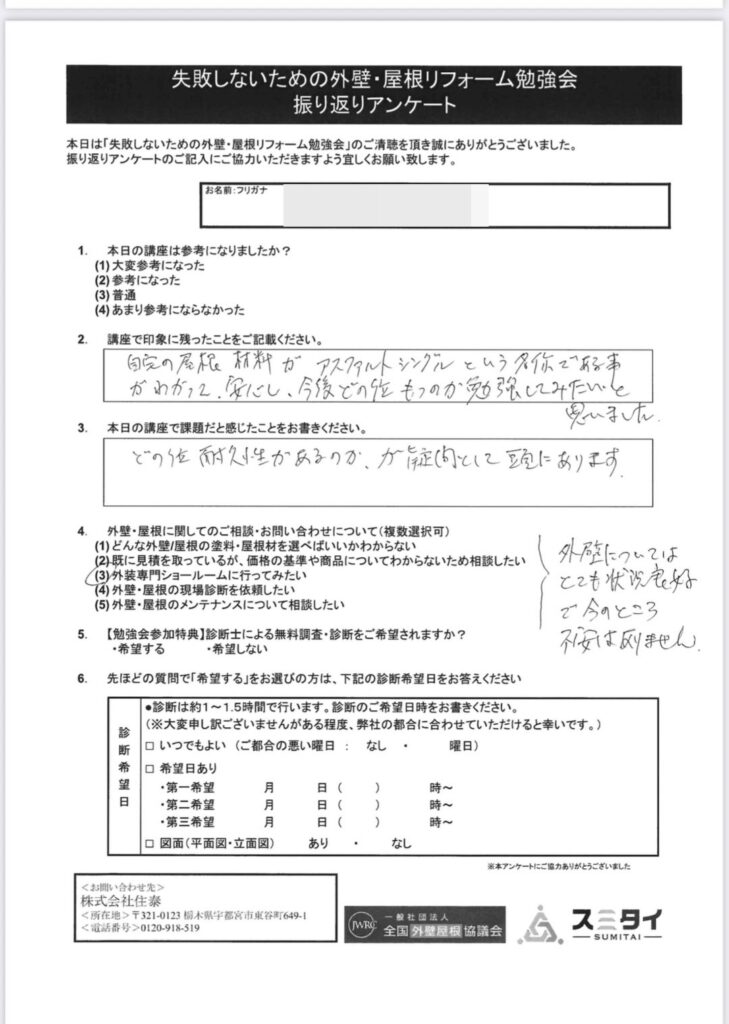 失敗しないための外壁・屋根リフォーム勉強会
振り返りアンケート
本日は「失敗しないための外壁・屋根リフォーム勉強会」のご清聴を頂き誠にありがとうございました。
振り返りアンケートのご記入にご協力いただきますよう宜しくお願い致します。
お名前：フリガナ
1. 本日の講座は参考になりましたか？
(1) 大変参考になった
(2) 参考になった
(3) 普通
(4) あまり参考にならなかった
2. 講座で印象に残ったことをご記載ください。
自宅の屋根 材料が アスファルトシングル という名称である事
がわかって、安心し、今後どの位もつのか勉強してみたいと
思いました.
3. 本日の講座で課題だと感じたことをお書きください。
どの位 耐久性があるのか、が 的として 頭にあります.
4. 外壁・屋根に関してのご相談・お問い合わせについて（複数選択可）
(1) どんな外壁/屋根の塗料・屋根材を選べばいいかわからない
(2) 既に見積を取っているが、価格の基準や商品についてわからないため相談したい
(3) 外装専門ショールームに行ってみたい
(4) 外壁・屋根の現場診断を依頼したい
(5) 外壁・屋根のメンテナンスについて相談したい
外壁については
とても状況良好
で今のところ
不安はありません.
5. 【勉強会参加特典】診断士による無料調査・診断をご希望されますか？
・希望する ・希望しない
6. 先ほどの質問で「希望する」をお選びの方は、下記の診断希望日をお答えください
診断希望日
●診断は約1～1.5時間で行います。診断のご希望日時をお書きください。
（※大変申し訳ございませんがある程度、弊社の都合に合わせていただけると幸いです。）
□ いつでもよい （ご都合の悪い曜日 ： なし ・ 曜日）
□ 希望日あり
・第一希望 月 日（ ） 時～
・第二希望 月 日（ ） 時～
・第三希望 月 日（ ） 時～
□ 図面（平面図・立面図） あり ・ なし
※本アンケートにご協力ありがとうございました
＜お問い合わせ先＞
株式会社住泰
＜所在地＞〒321-0123 栃木県宇都宮市東谷町649-1
＜電話番号＞0120-918-519
JWRC
一般社団法人
全国外壁屋根協議会
スミタイ
SUMITAI